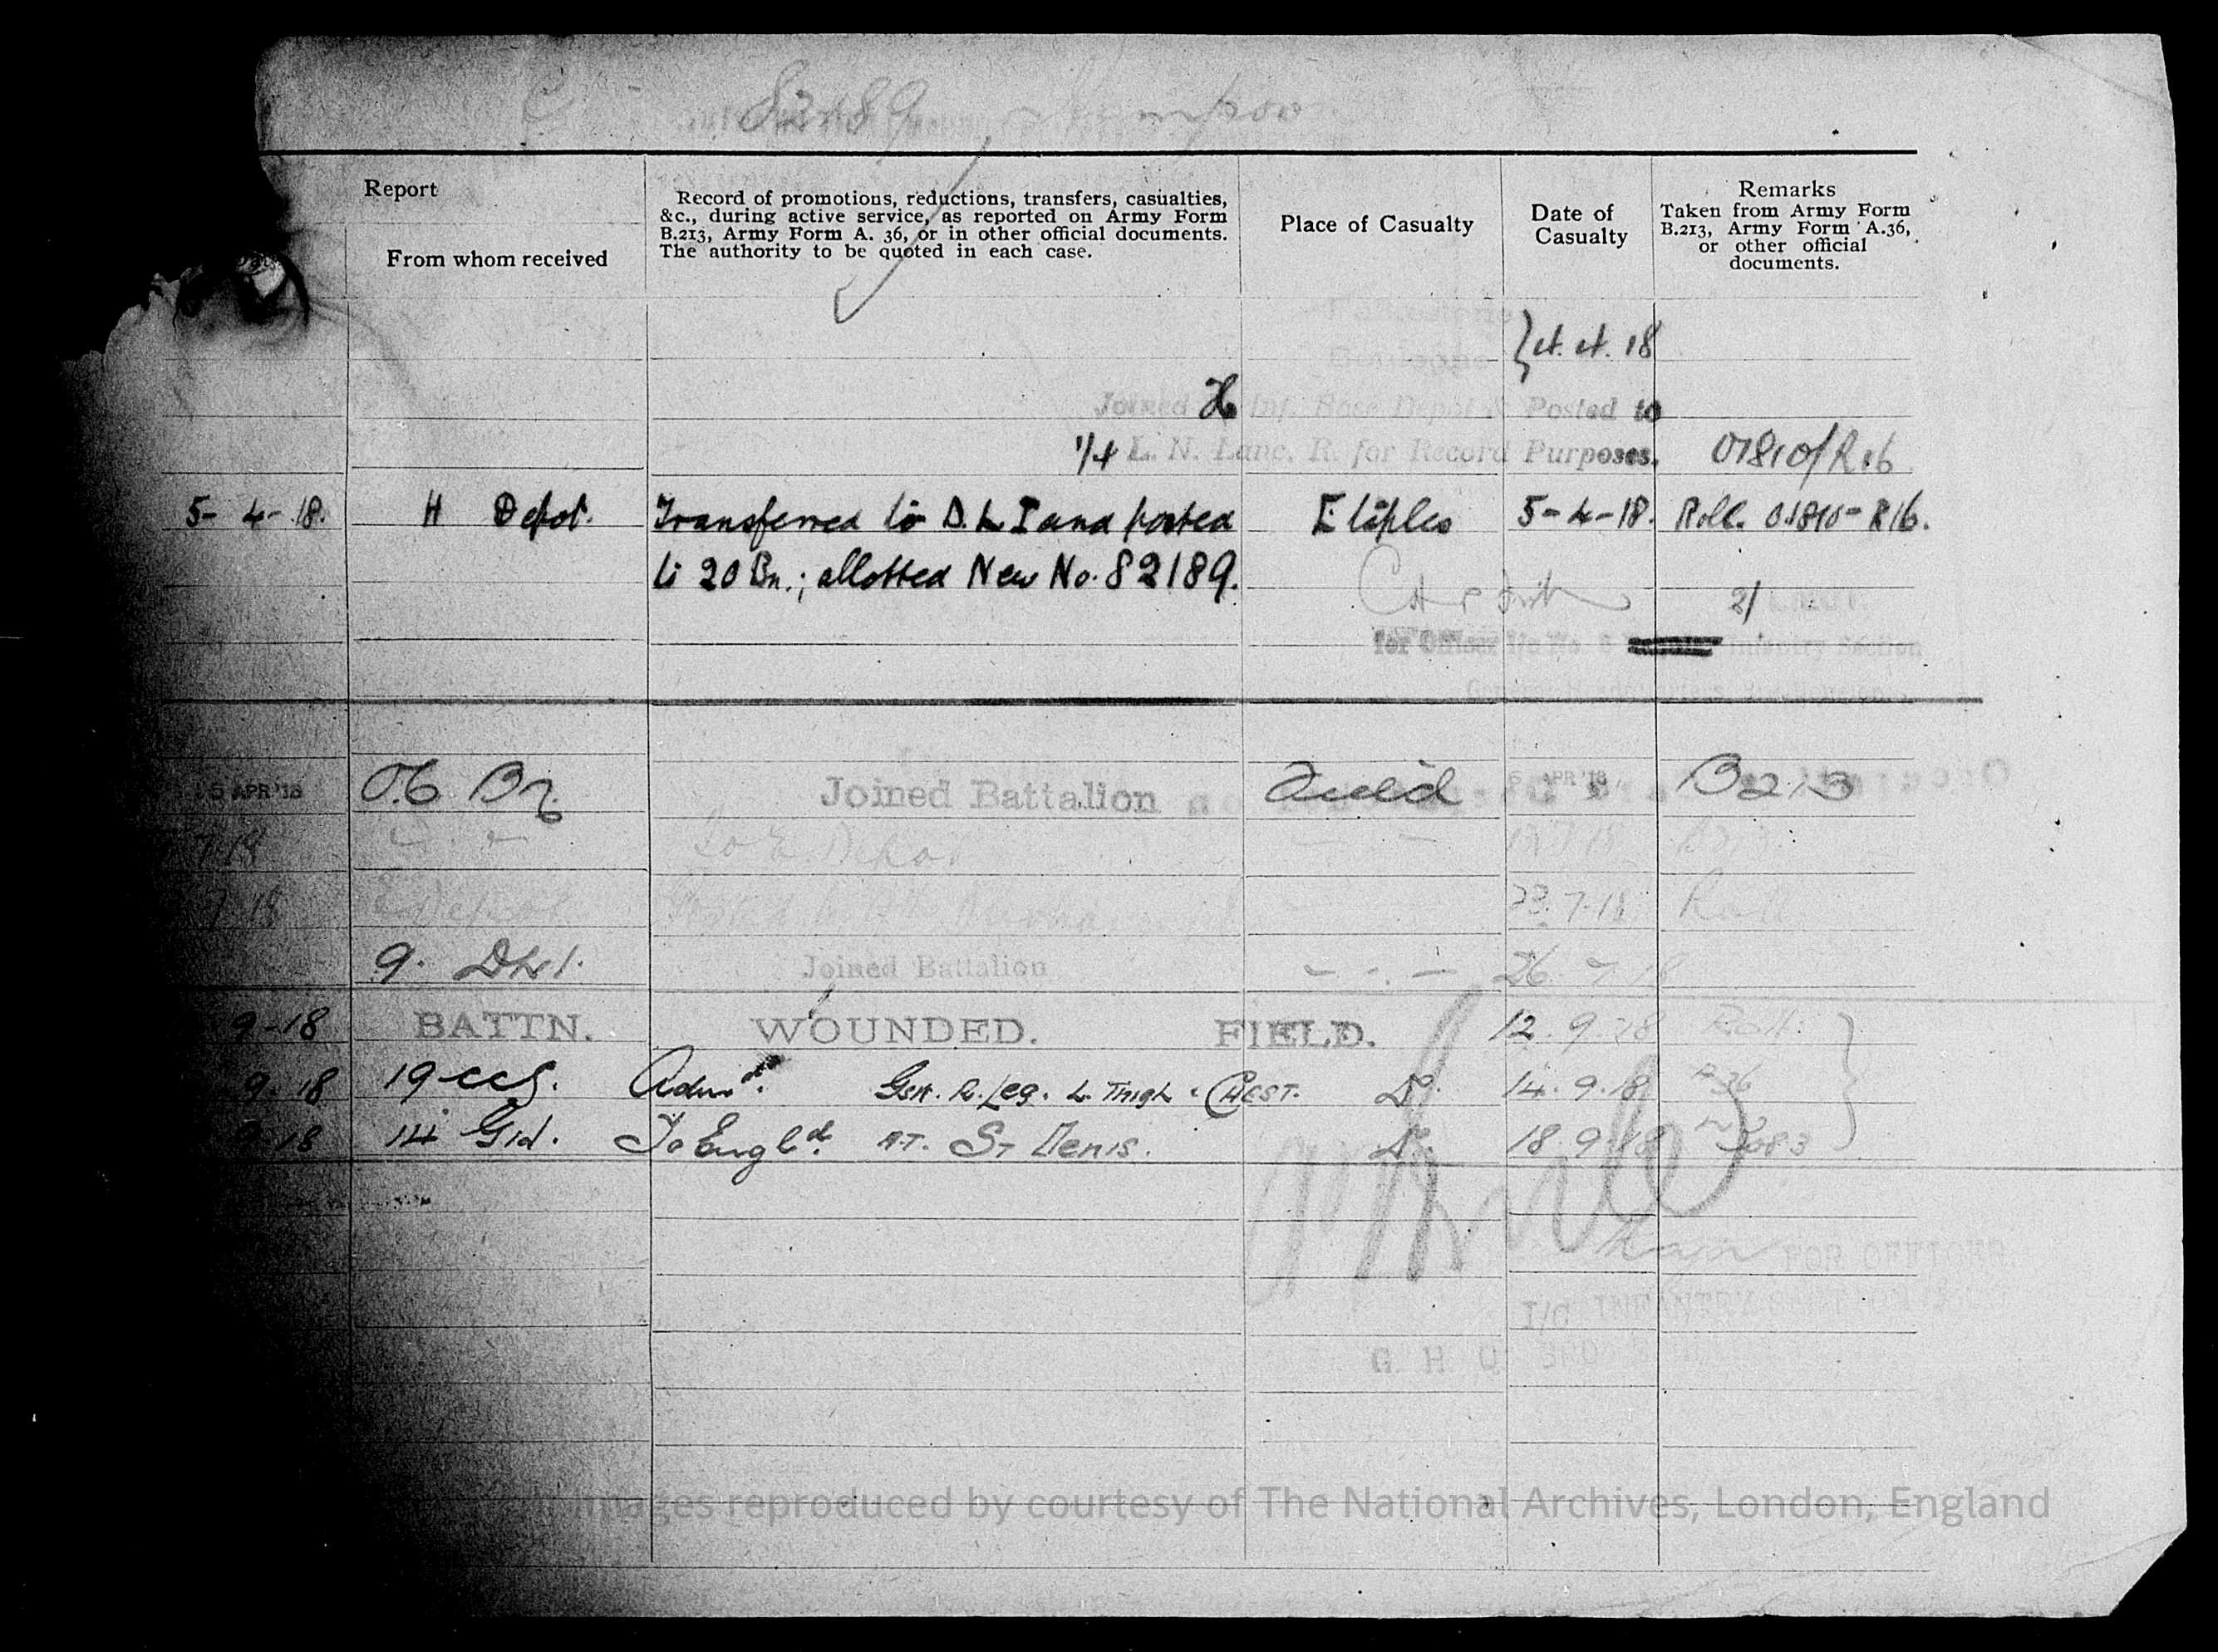 82189
Report
From whom received
Record of promotions, reductions, transfers, casualties,
&c., during active service, as reported on Army Form
B.213, Army Form A. 36, or in other official documents.
The authority to be quoted in each case.
Place of Casualty
Date of
Casualty
Remarks
Taken from Army Form
B.213, Army Form A.36,
or other official
documents.
4. 4. 18
Joined H Inf. Base Depot & Posted to
1/4 L. N. Lanc. R. for Record Purposes. 01810/R16
5- 4- 18. H Depot. Transferred to D.L.I and posted Etaples 5-4-18. Roll. 01810-R16.
to 20 Bn.; allotted New No. 82189.
2/ LIEUT.
for Officer i/c No. Infantry Section
APR '18 O.C. Bn. Joined Battalion Field APR '18 B213
7.18 To E. Depot
7.18 E Depot 23.7.18 Roll
9. DLI. Joined Battalion - . - 26. 7. 18
9-18 BATTN. WOUNDED. FIELD. 12. 9. 18 Roll.
9. 18 19 CCS. Adm. GSW. R. Leg. L. Thigh. CHEST. Do. 14. 9. 18 A36
9.18 14 Gnl. To Engld. AT. St Denis. Do. 18. 9. 18 3083
FOR OFFICER
I/C INFANTRY SECTION
G. H. Q. 3RD
Images reproduced by courtesy of The National Archives, London, England